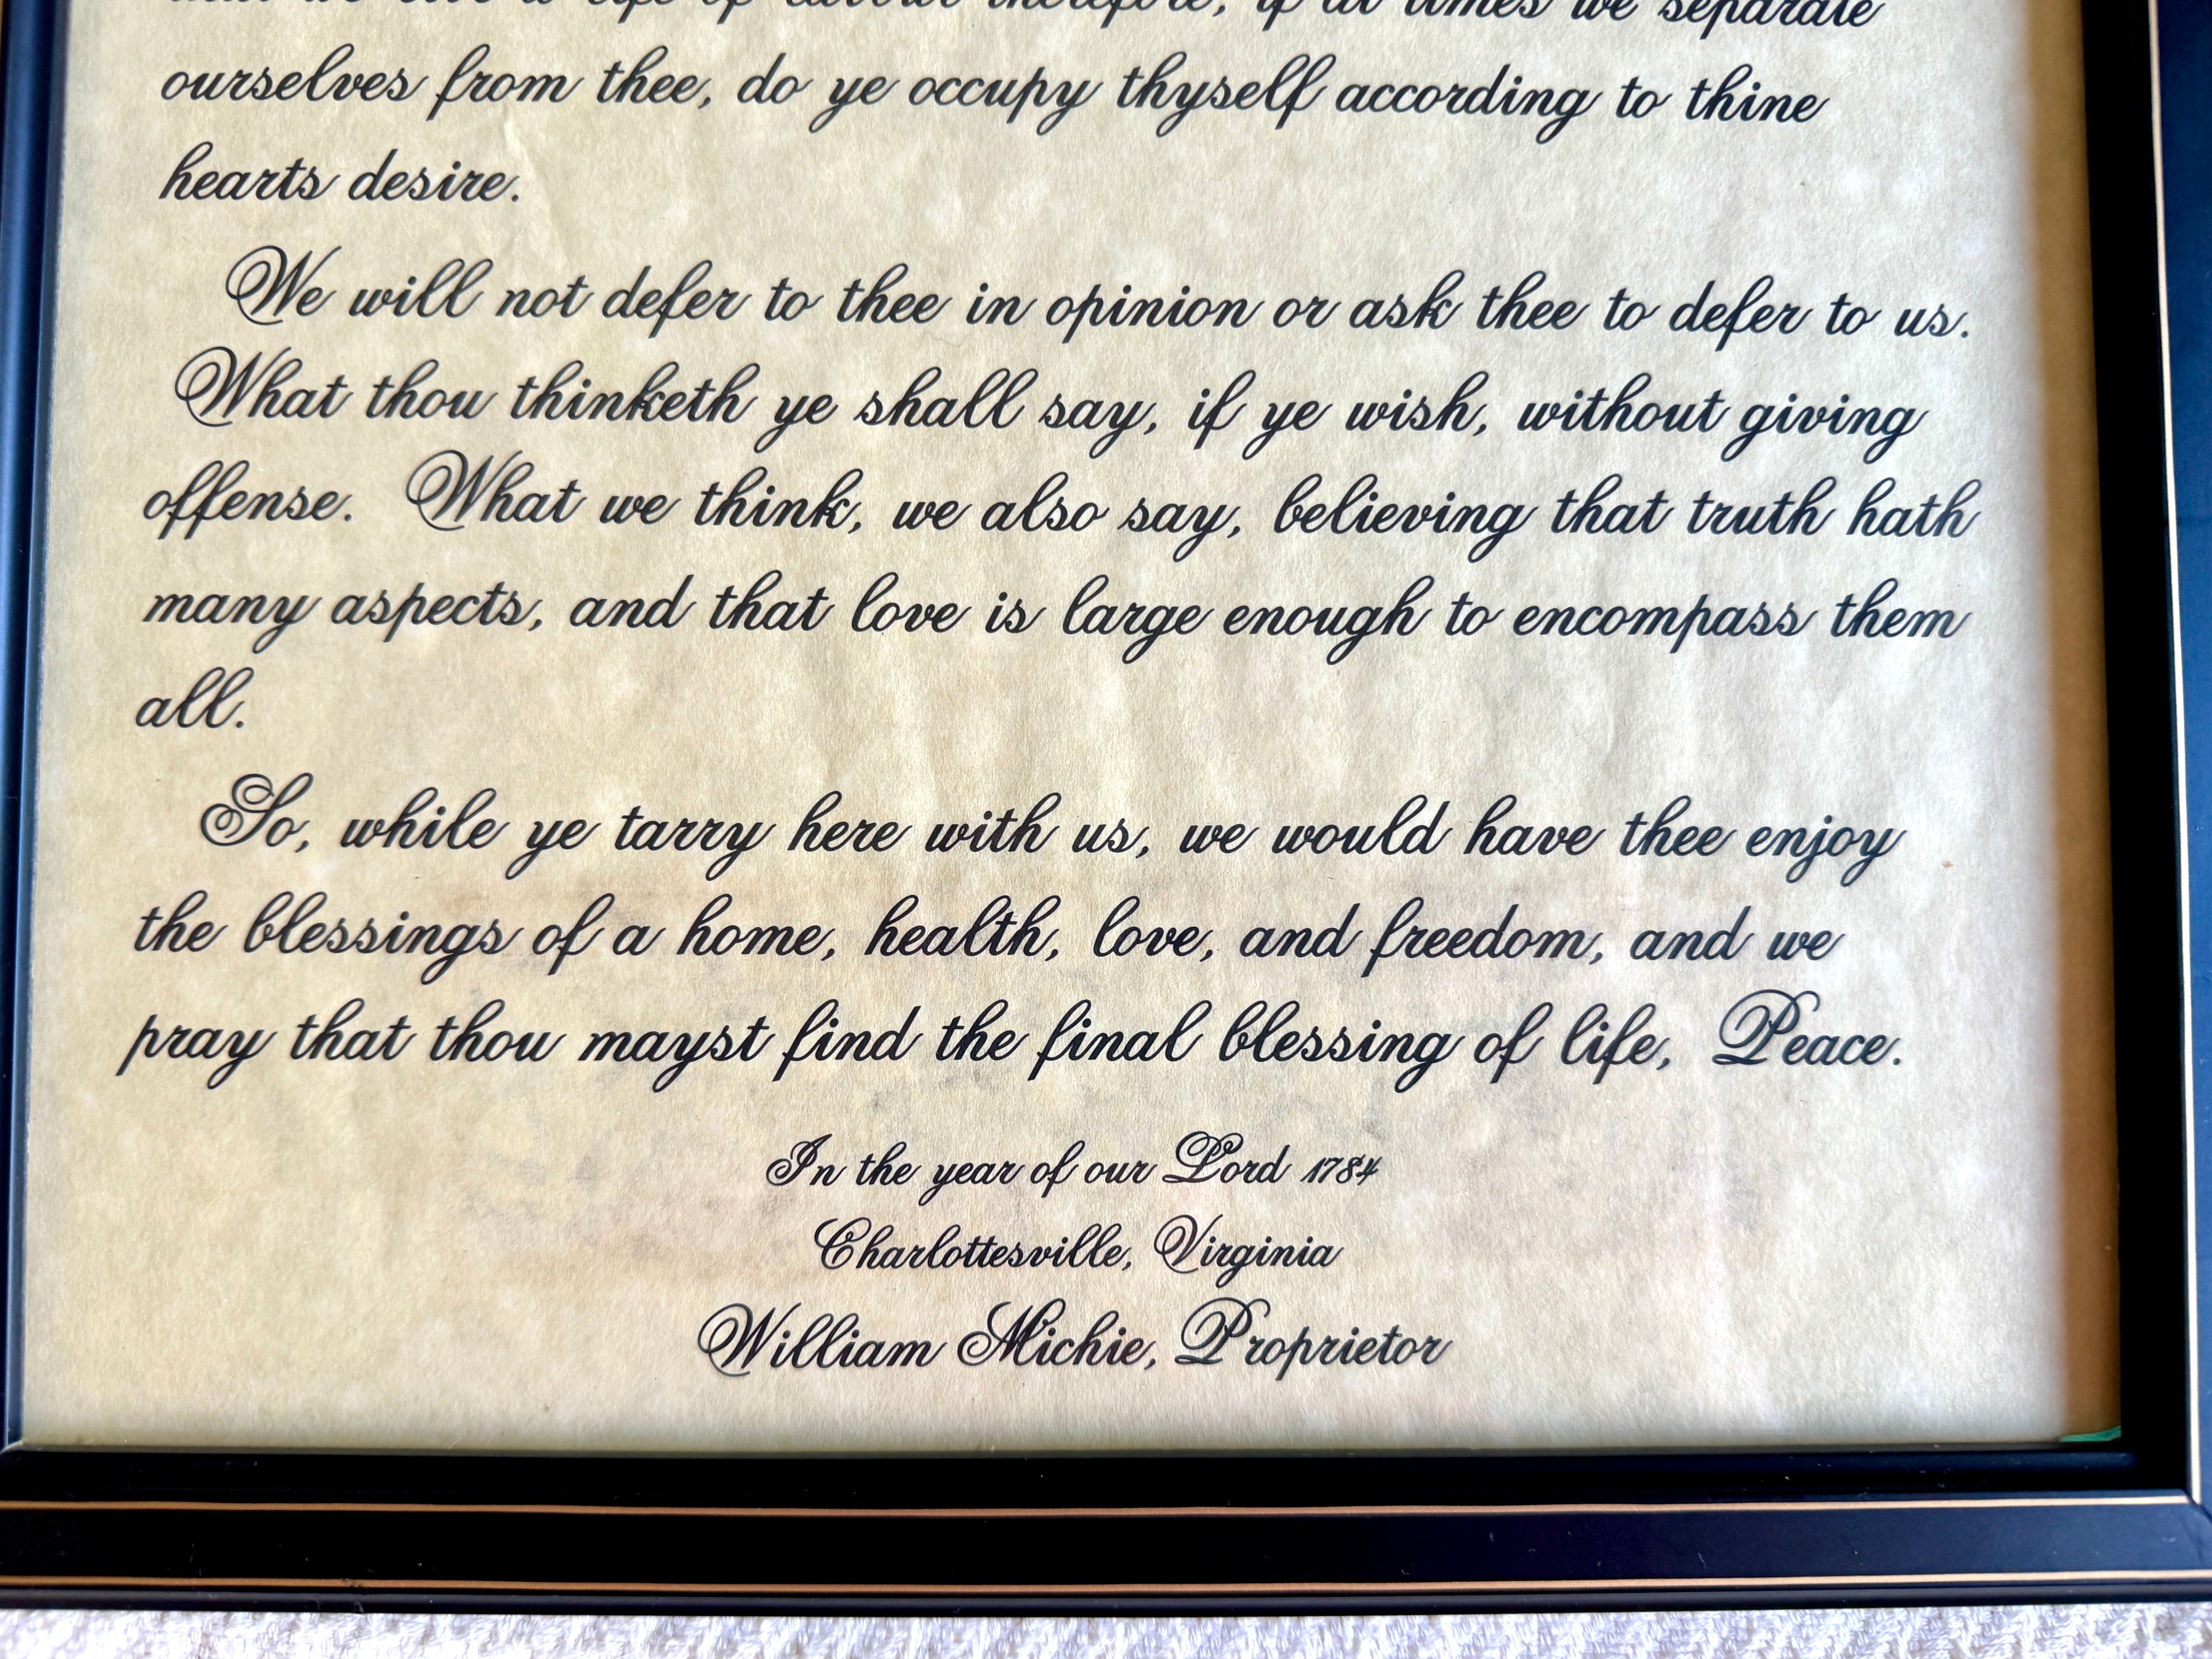 that we live a life of labour therefore, if at times we separate
ourselves from thee, do ye occupy thyself according to thine
hearts desire.
We will not defer to thee in opinion or ask thee to defer to us.
What thou thinketh ye shall say, if ye wish, without giving
offense. What we think, we also say, believing that truth hath
many aspects, and that love is large enough to encompass them
all.
So, while ye tarry here with us, we would have thee enjoy
the blessings of a home, health, love, and freedom, and we
pray that thou mayst find the final blessing of life, Peace.
In the year of our Lord 1784
Charlottesville, Virginia
William Michie, Proprietor